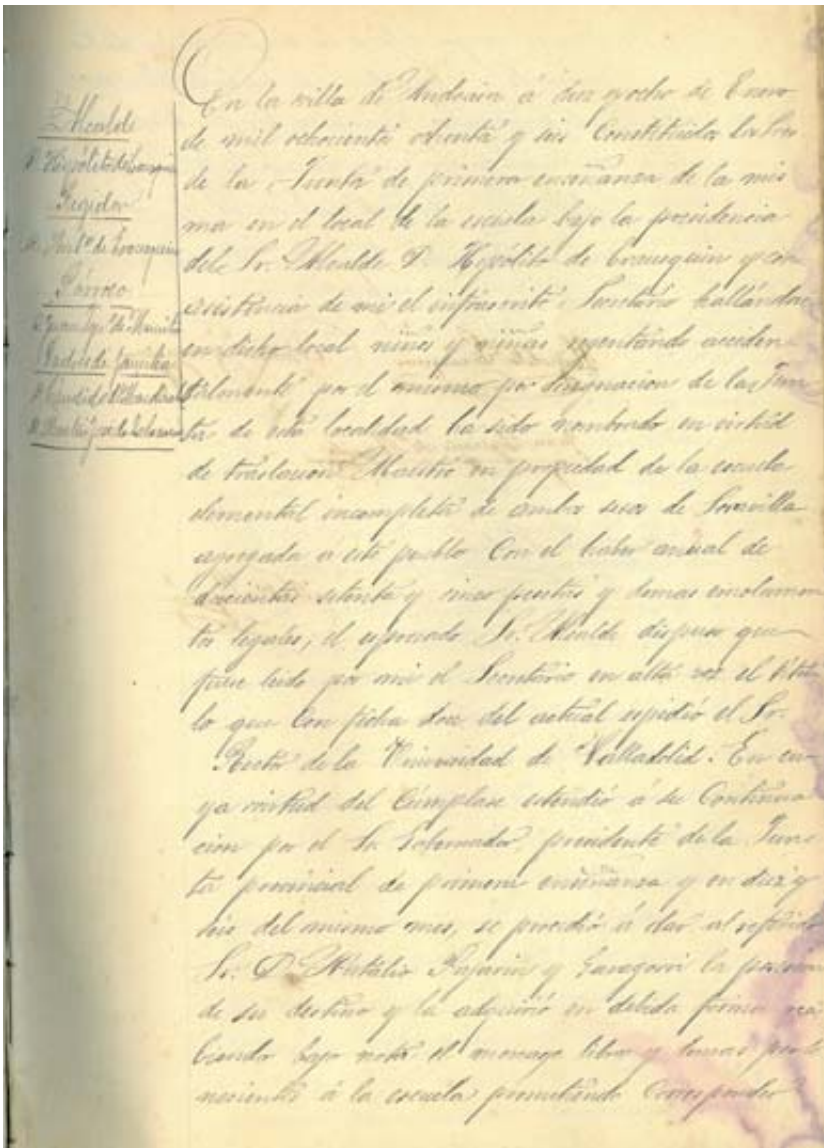 Alcalde
D. Hipólito de
Regidor
de
Párroco
D. Juan de
Padres de familia
D. Cándido
D.
En la villa de Andoain á diez y ocho de Enero
de mil ochocientos ochenta y seis Constituidos los Sres
de la Junta de primera enseñanza de la mis
ma en el local de la escuela bajo la presidencia
del Sr. Alcalde D. Hipólito de y con
asistencia de mi el infrascrito Secretario hallándose
en dicho local niños y niñas regentando acciden
talmente por el mismo por designacion de la Jun
ta de esta localidad ha sido nombrado en virtud
de traslacion Maestro en propiedad de la escuela
elemental incompleta de ambos sexos de Soravilla
agregada a este pueblo Con el haber anual de
doscientas setenta y cinco pesetas y demas emolumen
tos legales, el espresado Sr. Alcalde dispuso que
fuese leido por mi el Secretario en alta voz el títu
lo que con fecha doce del actual espidió el Sr.
Rector de la Universidad de Valladolid. En cu
ya virtud del Cúmplase estendió á su Continua
cion por el Sr. Gobernador presidente de la Jun
ta provincial de primera enseñanza y en diez y
seis del mismo mes, se procedió á dar al referido
Sr. D. y la posesion
de su destino y la adquirió en debida forma reci
biendo bajo nota el menage libros y demas perte
necientes á la escuela prometiendo Corresponder